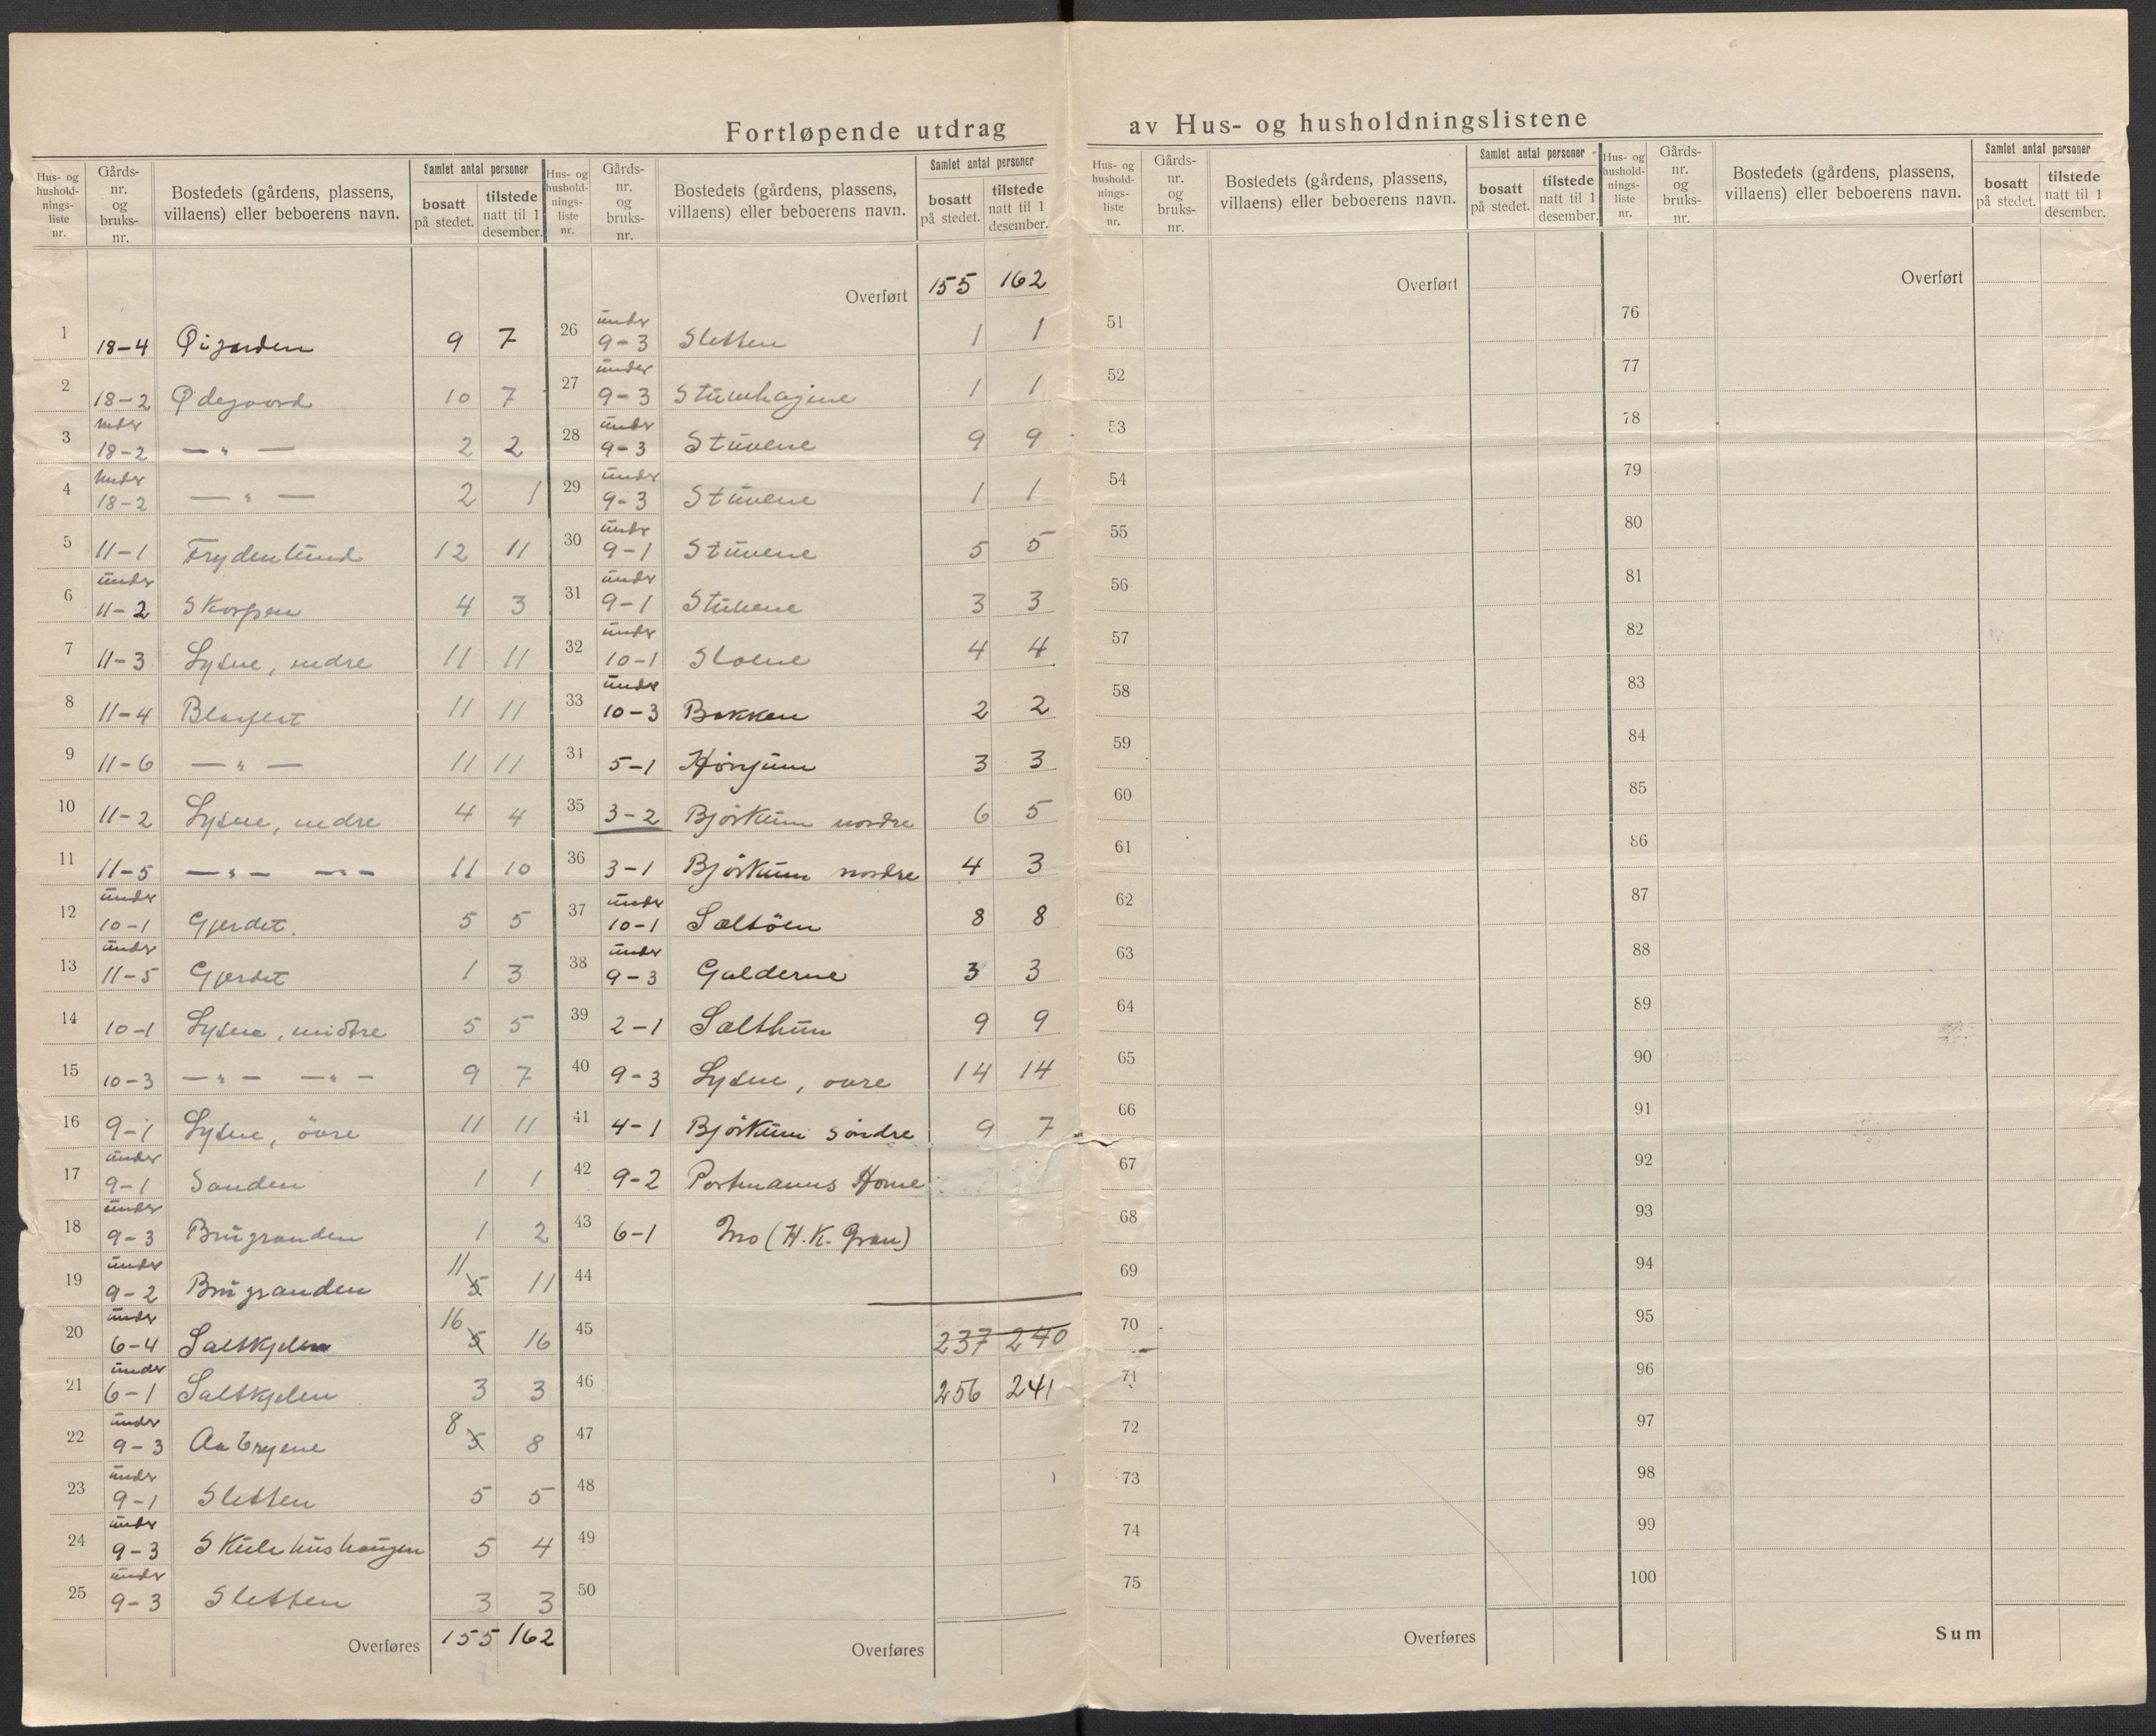 Fortløpende utdrag av Hus- og husholdningslistene
Hus- og hushold-nings-liste nr. Gårds-nr. og bruks-nr. Bostedets (gårdens, plassens, villaens) eller beboerens navn. Samlet antal personer bosatt på stedet. tilstede natt til 1 desember.
1 18-4 Øigarden 9 7
2 18-2 Ødegaard 10 7
3 under 18-2 — " — 2 2
4 under 18-2 — " — 2 1
5 11-1 Frydenlund 12 11
6 under 11-2 Skorpen 4 3
7 11-3 Lysne, nedre 11 11
8 11-4 Blaaflat 11 11
9 11-6 — " — 11 11
10 11-2 Lysne, nedre 4 4
11 11-5 — " — — " — 11 10
12 under 10-1 Gjerdet. 5 5
13 under 11-5 Gjerdet 1 3
14 10-1 Lysne, midtre 5 5
15 10-3 — " — — " — 9 7
16 9-1 Lysne, övre 11 11
17 under 9-1 Sanden 1 1
18 under 9-3 Brugranden 1 2
19 under 9-2 Brugranden 11 5 11
20 under 6-4 Saltkjelen 16 5 16
21 under 6-1 Saltkjelen 3 3
22 under 9-3 8 5 8
23 under 9-1 Sletten 5 5
24 under 9-3 Skulehushaugen 5 4
25 under 9-3 Sletten 3 3
Overføres 155 162
Hus- og hushold-nings-liste nr. Gårds-nr. og bruks-nr. Bostedets (gårdens, plassens, villaens) eller beboerens navn. Samlet antal personer bosatt på stedet. tilstede natt til 1 desember.
Overført 155 162
26 under 9-3 Sletten 1 1
27 under 9-3 Stuvehagene 1 1
28 under 9-3 Stuvene 9 9
29 under 9-3 Stuvene 1 1
30 under 9-1 Stuvene 5 5
31 under 9-1 Stuvene 3 3
32 under 10-1 4 4
33 under 10-3 Bakken 2 2
31 5-1 Hönjum 3 3
35 3-2 Björkum nordre 6 5
36 3-1 Björkum nordre 4 3
37 under 10-1 Saltöen 8 8
38 under 9-3 Galderne 3 3
39 2-1 Salthun 9 9
40 9-3 Lysne, ovre 14 14
41 4-1 Björkum söndre 9 7
42 9-2 Portmanns Home
43 6-1 Mo (H. K. Gran)
44
45 237 240
46 256 241
47
48
49
50
Overføres
Hus- og hushold-nings-liste nr. Gårds-nr. og bruks-nr. Bostedets (gårdens, plassens, villaens) eller beboerens navn. Samlet antal personer bosatt på stedet. tilstede natt til 1 desember.
Overført
51
52
53
54
55
56
57
58
59
60
61
62
63
64
65
66
67
68
69
70
71
72
73
74
75
Overføres
Hus- og hushold-nings-liste nr. Gårds-nr. og bruks-nr. Bostedets (gårdens, plassens, villaens) eller beboerens navn. Samlet antal personer bosatt på stedet. tilstede natt til 1 desember.
Overført
76
77
78
79
80
81
82
83
84
85
86
87
88
89
90
91
92
93
94
95
96
97
98
99
100
Sum